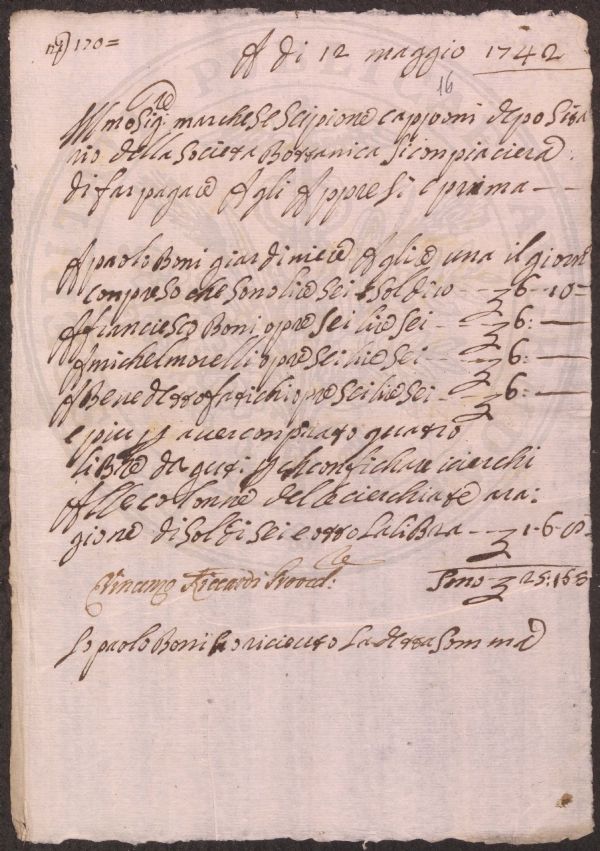 n.º 170=
A di 12 maggio 1742
16
Ill.mo Sig.re marchese Scipione capponi deposita
rio della Societa Bottanica Si conpiacierà
di far pagare Agli Appresi e prima - -
A paolo Boni giardiniere A lire una il giorno
conpreso che sono lire sei e soldi 10 - 6 - 10 =
A franciesco Boni opre sei lire sei - 6: —
A michel morelli opre sei lire sei - 6: —
A Benedetto fatichi opre sei lire sei - 6: —
e piu p aver conprato quatro
libre da guti p chonfichare i cierchi
Alle colonne delle cierchiate a ra:
gione di Soldi sei e otto La libra - 1-6-8
Vincenzo Riccardi Provved:
Sono 25:16:8
Io paolo Boni ho riceuto La detta Somma